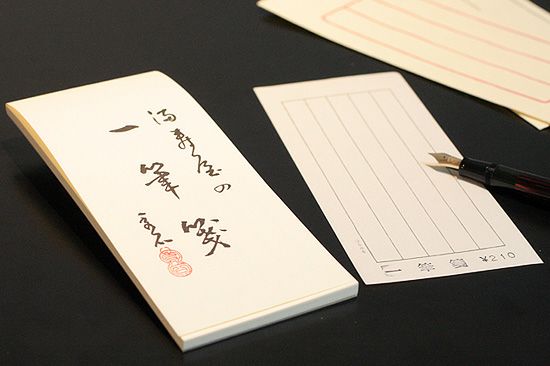 満寿屋の
一筆箋
一筆箋 ¥210